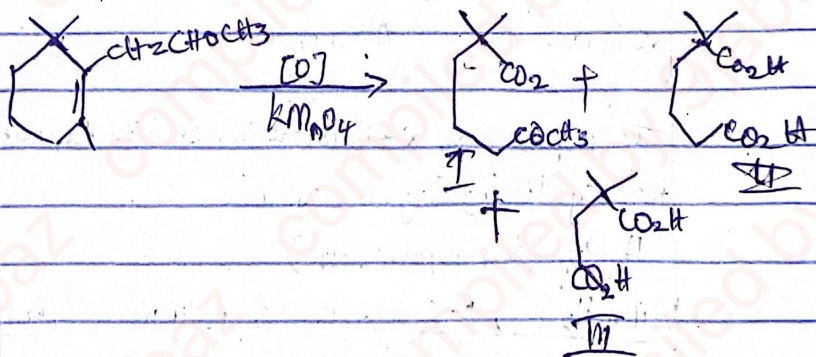 CH2CHOCH3
[O]
KMnO4
CO2 + CO2H
COCH3 CO2H
I II
+ CO2H
CO2H
III